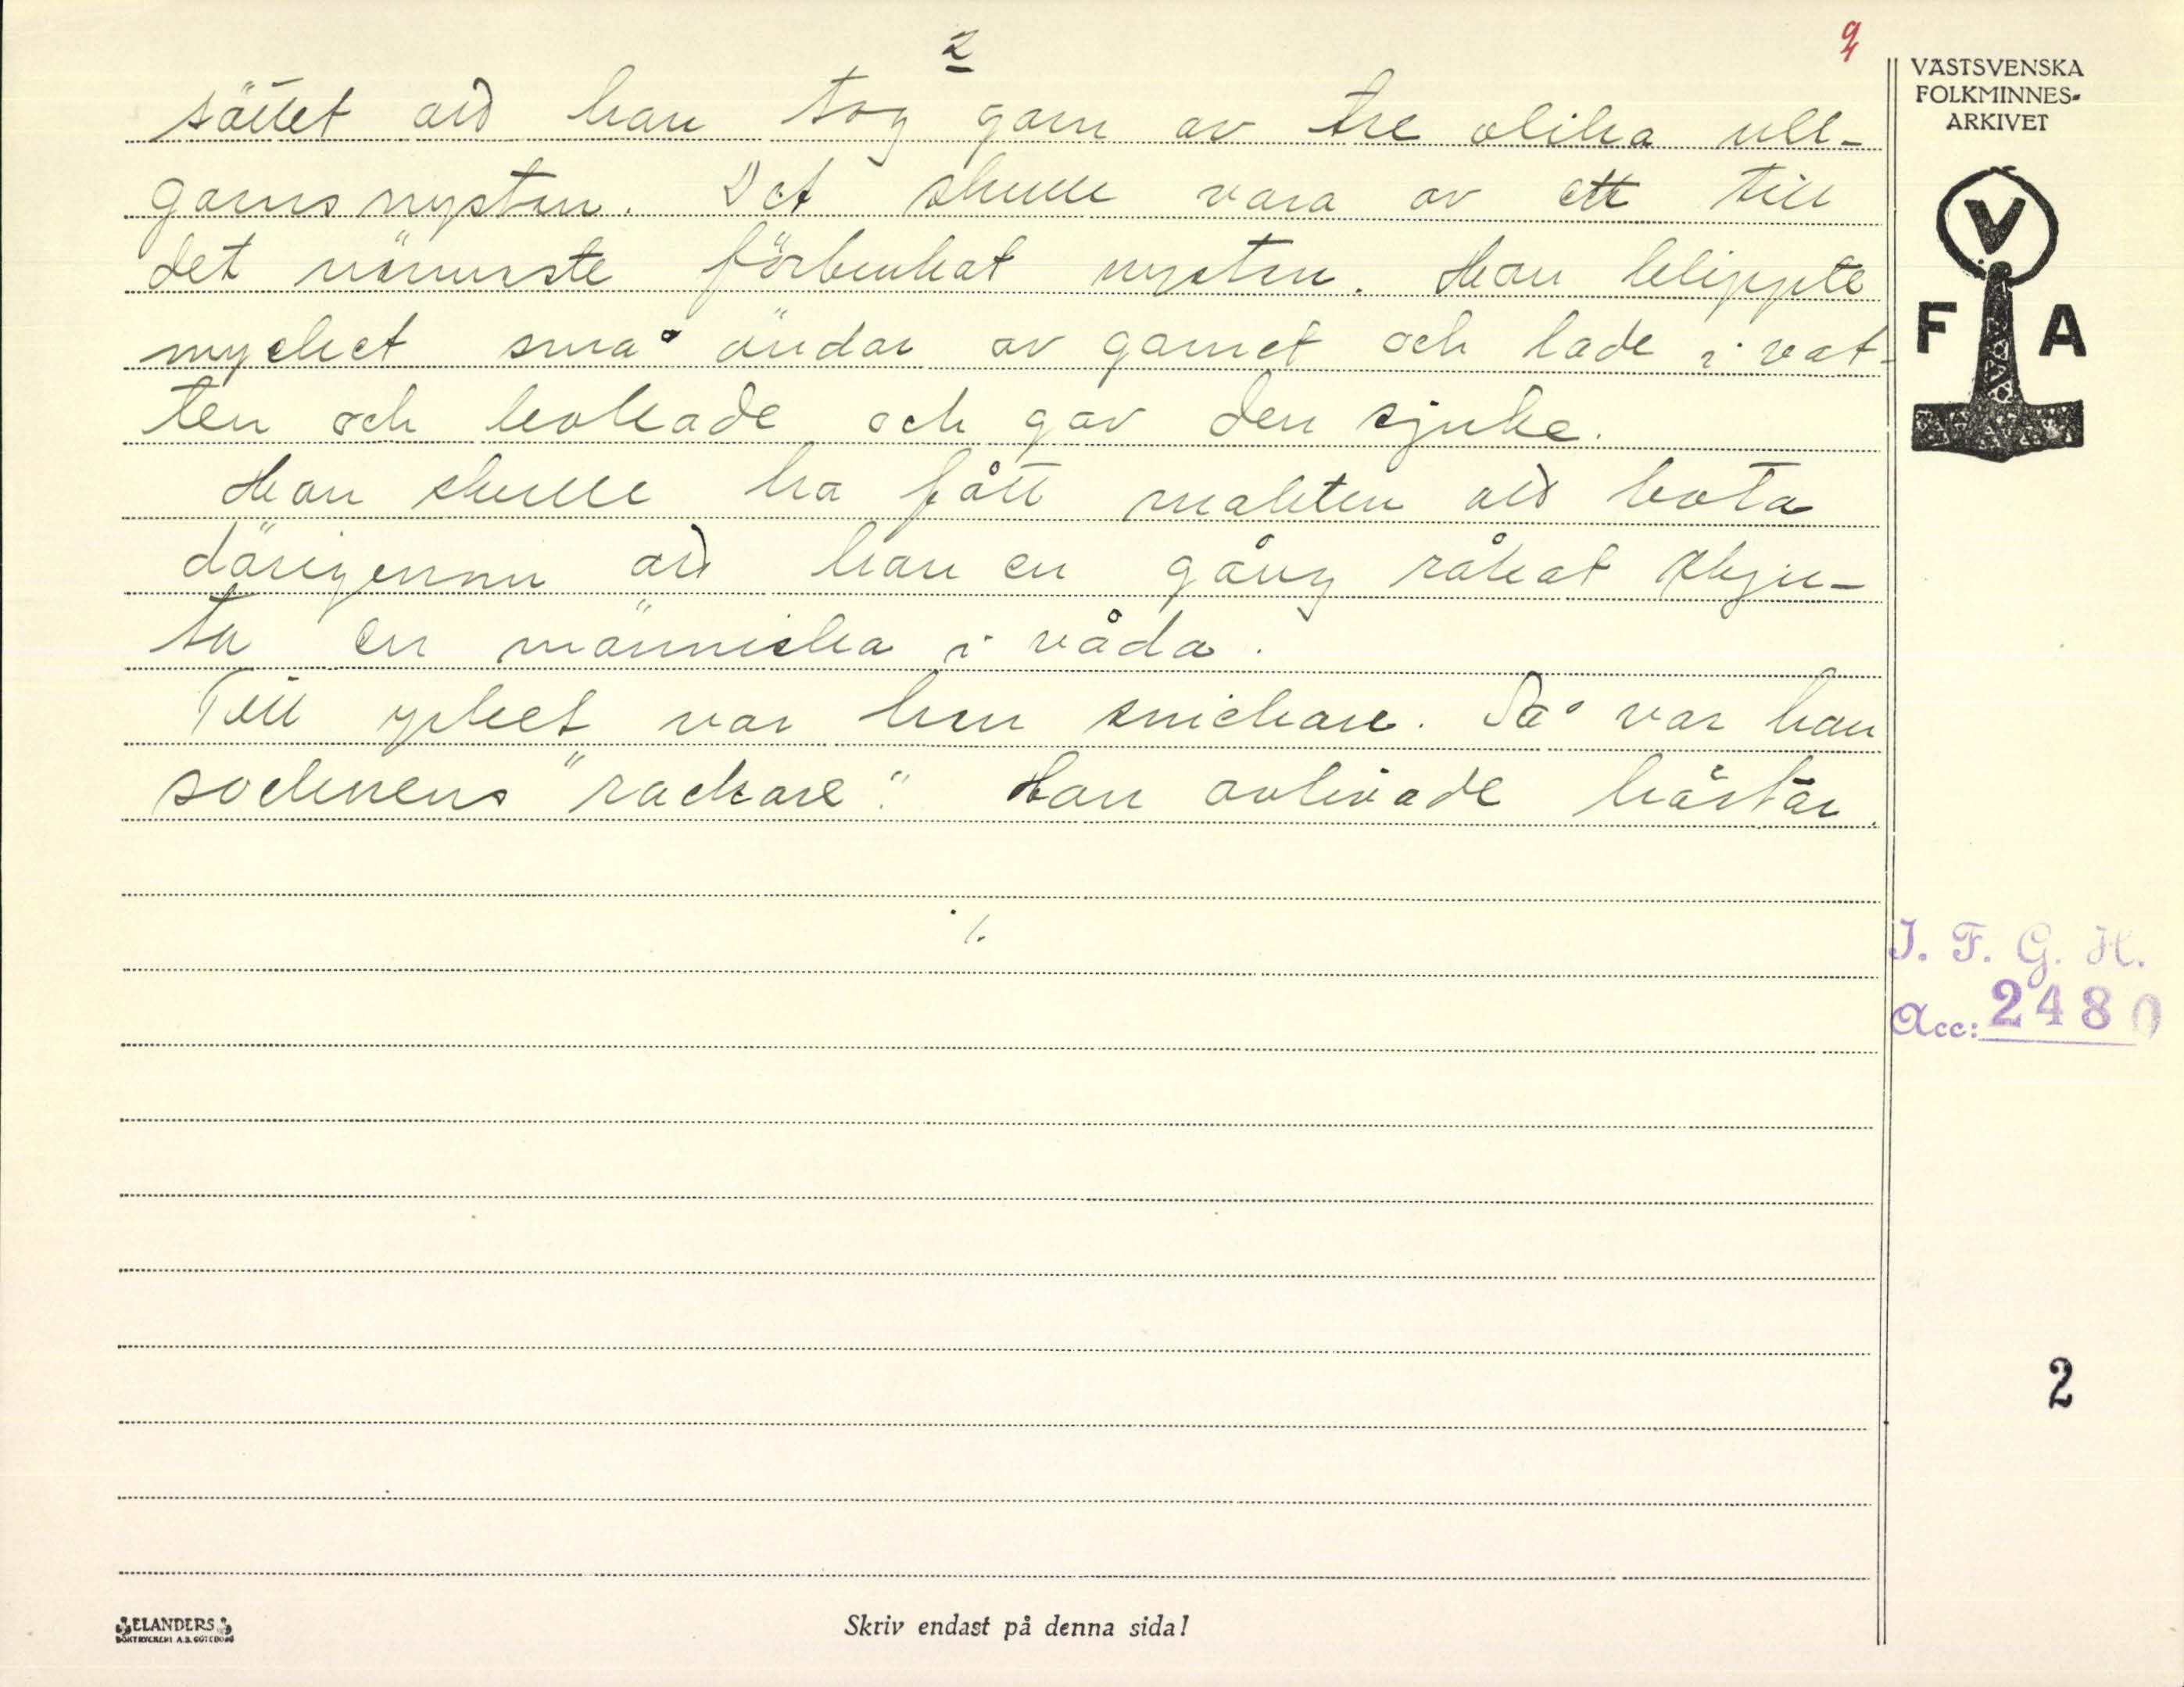 2
9
sättet att han tog garn av tre olika ull-
garnsnystan. Det skulle vara av ett till
det nämnste förbrukat nystan. Han klippte
mycket små ändar av garnet och lade i vat-
ten och kokade och gav den sjuke.
Han skulle ha fått makten att bota
därigenom att han en gång råkat skju-
ta en människa i våda.
Till yrket var han snickare. Så var han
socknens "rackare". Han avlivade hästar.
./.
VÄSTSVENSKA
FOLKMINNES-
ARKIVET
V
F A
I. F. G. H.
Acc: 2480
2
ELANDERS
BOKTRYCKERI A.B. GÖTEBORG
Skriv endast på denna sida!